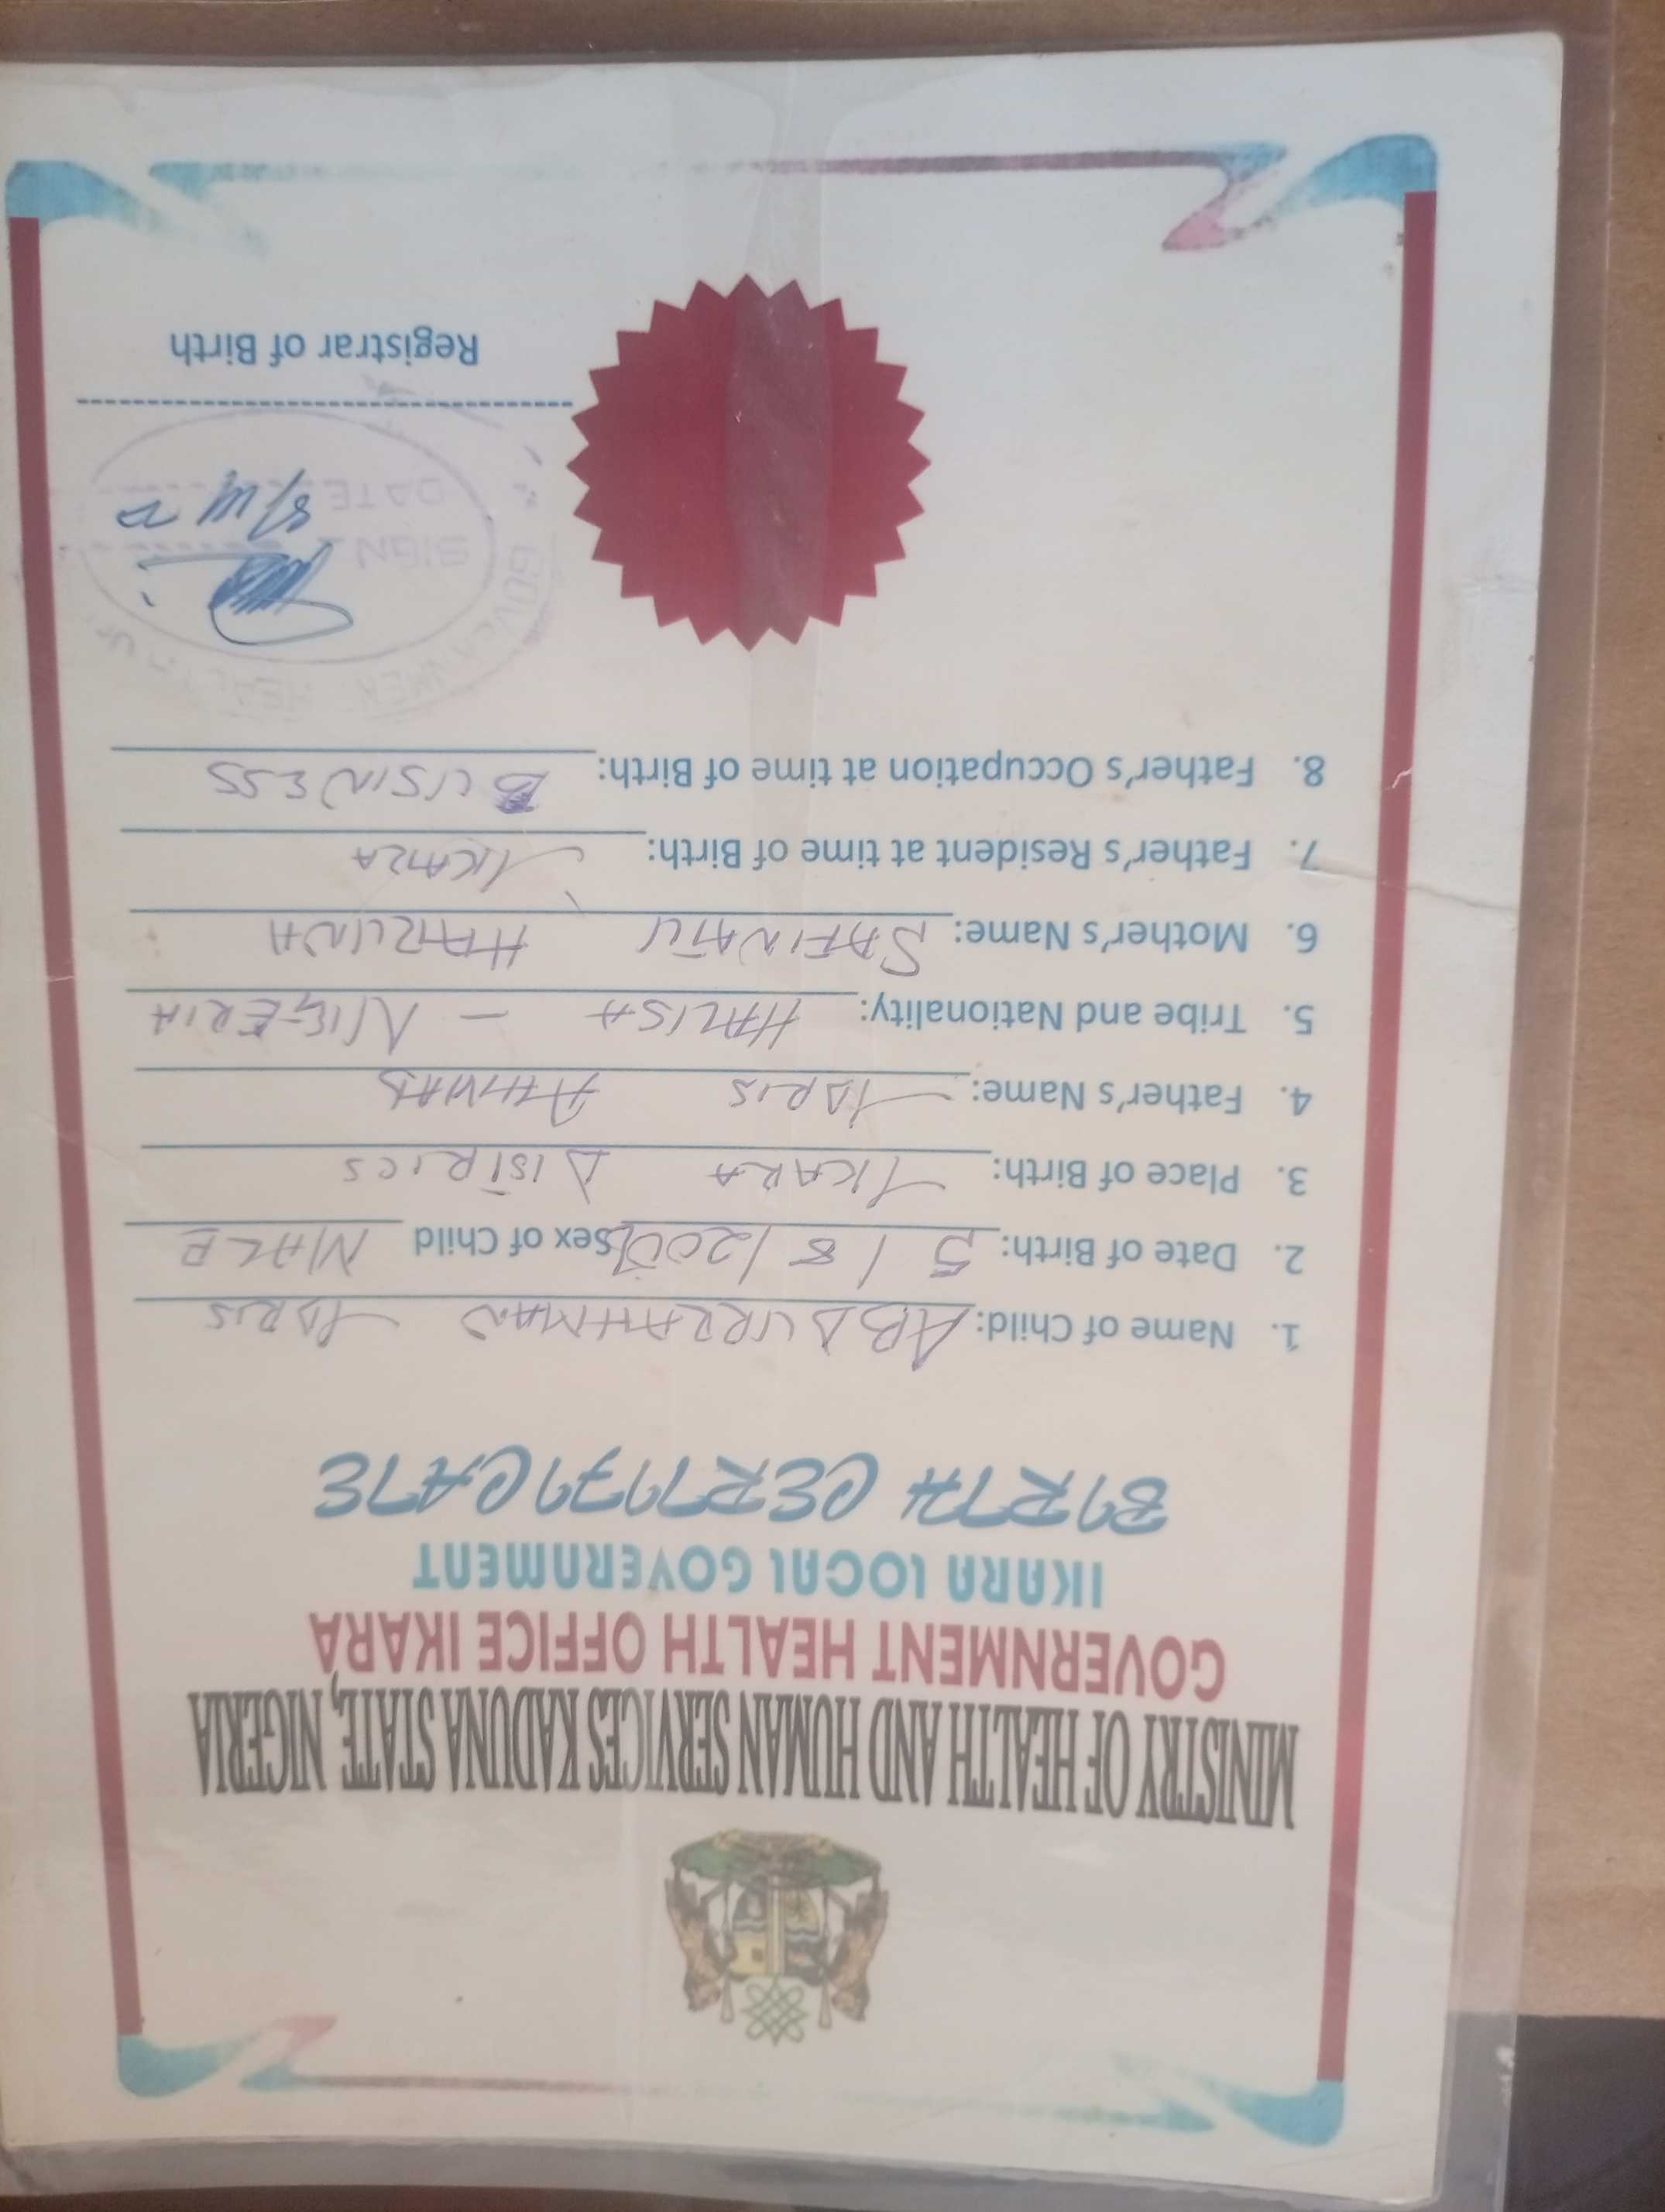 MINISTRY OF HEALTH AND HUMAN SERVICES KADUNA STATE, NIGERIA
GOVERNMENT HEALTH OFFICE IKARA
IKARA LOCAL GOVERNMENT
BIRTH CERTIFICATE
1. Name of Child: ABDURRAHMAN IDRIS
2. Date of Birth: 5/8/ Sex of Child MALE
3. Place of Birth: IKARA DISTRICS
4. Father's Name: IDRIS AHMAD
5. Tribe and Nationality: HAUSA - NIGERIA
6. Mother's Name: SAFINATU HARUNA
7. Father's Resident at time of Birth: IKARA
8. Father's Occupation at time of Birth: BUSINESS
GOVERNMENT HEALTH
SIGN
DATE
Registrar of Birth